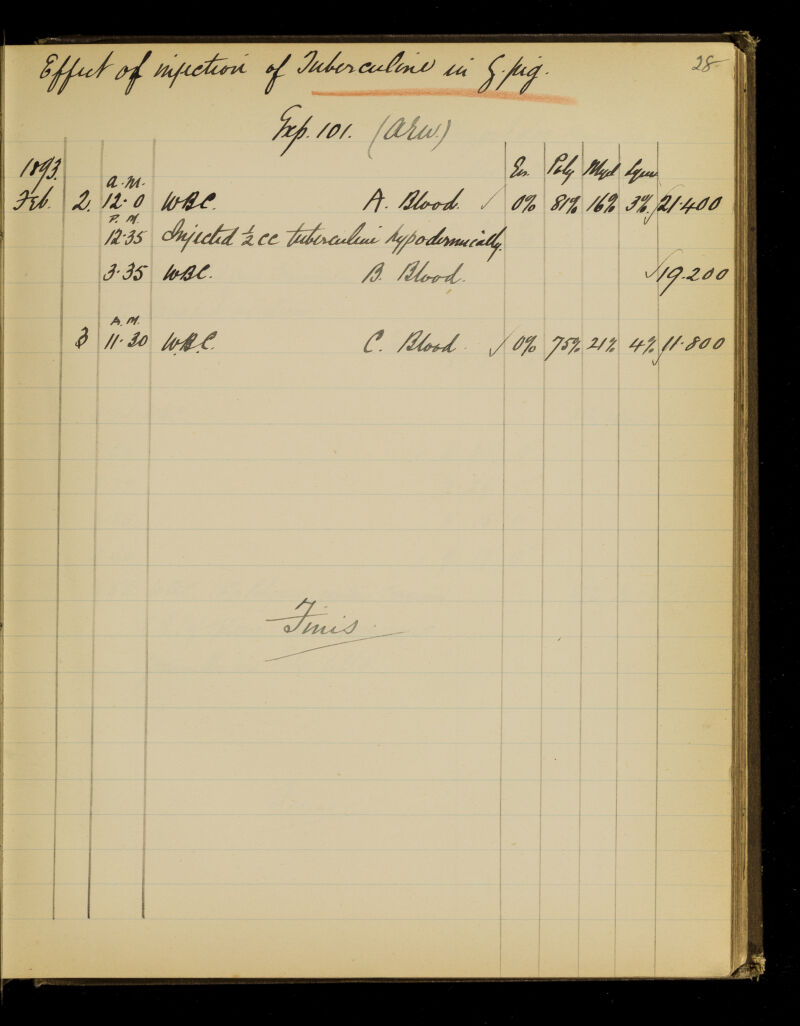 28
Effect of injection of Tuberculine in G. pig.
Exp. 101. (AEW.)
1893. Eo. Poly Myel Lym
a.m.
Feb. 2. 12.0 WBC. A. Blood. ✓ 0% 81% 16% 3% 21.400
P.M.
12.35 Injected ½ cc tuberculine hypodermically.
3.35 WBC. B. Blood. ✓ 19.200
A.M.
3 11.30 W.B.C. C. Blood. ✓ 0% 75% 21% 4% 11.800
Finis.